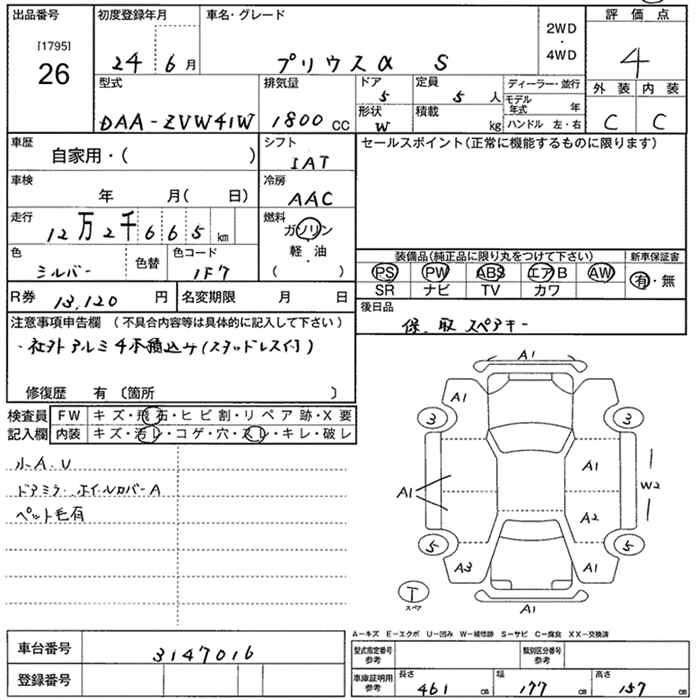 出品番号
[1795]
26
初度登録年月
24 6 月
車名・グレード
プリウスα S
2WD
・
4WD
評価点
4
外装 内装
C C
型式
DAA-ZVW41W
排気量
1800 CC
ドア
5
定員
5 人
形状
W
積載
kg
ディーラー・並行
モデル年式 年
ハンドル 左・右
車歴
自家用・( )
シフト
IAT
車検
年 月( 日)
冷房
AAC
走行
12万2千665 km
燃料
ガソリン
軽・油
( )
色
シルバー
色替
色コード
1F7
R券 13,120 円
名変期限 月 日
セールスポイント(正常に機能するものに限ります)
装備品(純正品に限り丸をつけて下さい)
PS PW ABS エアB AW
SR ナビ TV カワ
新車保証書
有・無
後日品
保、取 スペアキー
注意事項申告欄 (不具合内容等は具体的に記入して下さい)
・社外アルミ4本積込み(スタッドレス付)
修復歴 有 〔箇所 〕
検査員記入欄
FW キズ・飛石・ヒビ割・リペア跡・X要
内装 キズ・汚レ・コゲ・穴・スレ・キレ・破レ
小A.U
ドアミラー ホイルカバーA
ペット毛有
A1
A1
A1
3
3
A1
A1
W2
A2
5
5
A3
A1
T
スペア
A1
A-キズ E-エクボ U-凹み W-補修跡 S-サビ C-腐食 XX-交換済
車台番号
3147016
登録番号
型式指定番号
参考
類別区分番号
参考
車庫証明用
参考
長さ 461 cm
幅 177 cm
高さ 157 cm